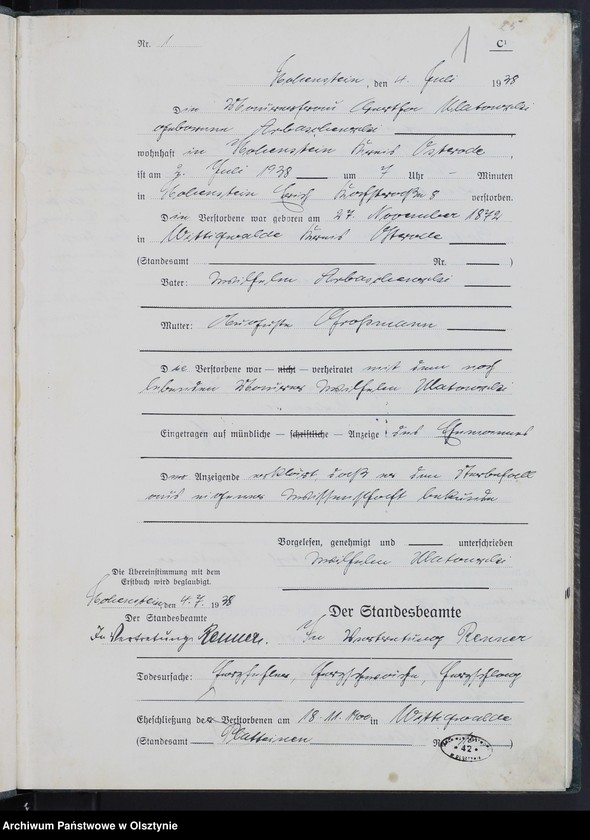 25
Nr. 1
1 C¹
Hohenstein, den 4. Juli 1938
Die Maurerfrau Bertha Klatowski
geborene Arbaschewski
wohnhaft in Hohenstein Kreis Osterode,
ist am 2. Juli 1938 um 7 Uhr – Minuten
in Hohenstein Erich Kochstraße 8 verstorben.
Die Verstorbene war geboren am 27. November 1872
in Wittigwalde Kreis Osterode
(Standesamt Nr. )
Vater: Wilhelm Arbaschewski
Mutter: Auguste Großmann
Die Verstorbene war — nicht — verheiratet mit dem noch
lebenden Maurer Wilhelm Klatowski
Eingetragen auf mündliche — schriftliche — Anzeige des Ehemannes
Der Anzeigende erklärt, daß er den Sterbefall
aus eigener Wissenschaft bekunde
Vorgelesen, genehmigt und unterschrieben
Wilhelm Klatowski
Die Übereinstimmung mit dem
Erstbuch wird beglaubigt.
Hohenstein, den 4.7. 1938
Der Standesbeamte
In Vertretung Renner.
Der Standesbeamte
In Vertretung Renner
Todesursache: Herzfehler, Herzschwäche, Herzschlag
Eheschließung der Verstorbenen am 18.11.1900 in Wittigwalde
(Standesamt Platteinen N )
42
Archiwum Państwowe w Olsztynie